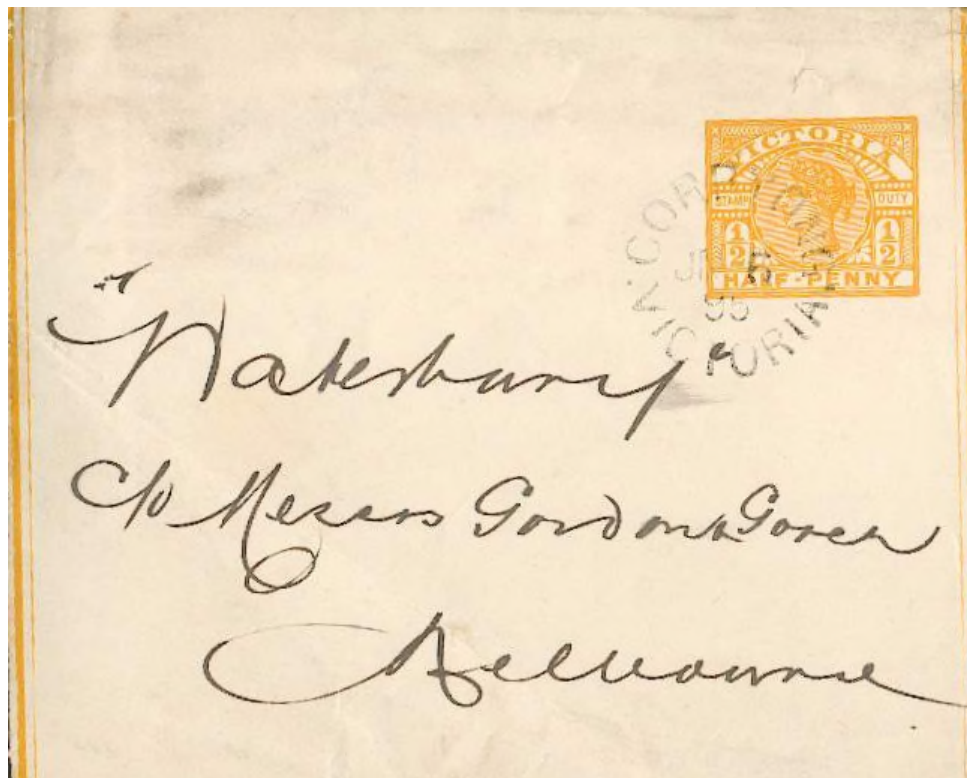 VICTORIA
STAMP DUTY
½ ½
HALF-PENNY
VICTORIA
95
Waterbury
c/o Messrs Gordon & Gotch
Melbourne